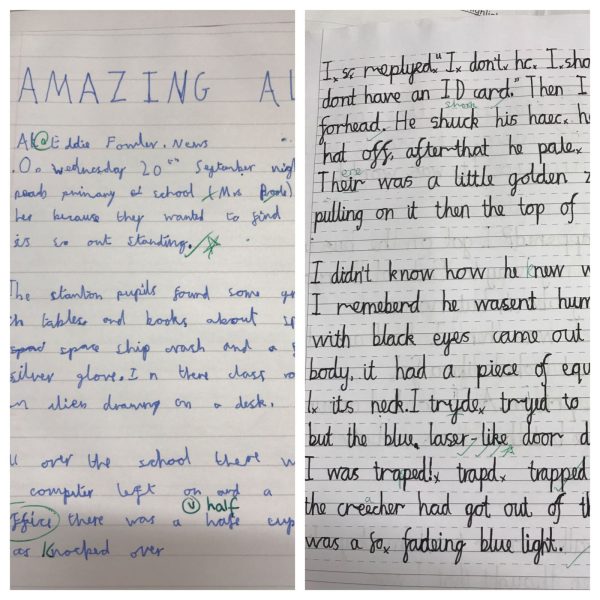 AMAZING AL
Eddie Fowler. News
.On wednesday 20th September nigh
reads primary school (Mrs
her because they wanted to find
is so out standing.
The stanton pupils found some gr
tables and books about sp
spad space ship crash and a
silver glove. In there class ro
alien drawing on a desk.
over the school there w
computer left on and a
half
Office there was a hafe cup
as Knocked over
highlin
I, replyed "I, don't, hc. I, sho
dont have an ID card." Then I
shook
forhead. He shuck his haec, he
hat off, after that he pale,
ere
Their was a little golden z
pulling on it then the top of
I didn't know how he knew w
I memeberd he wasent hum
with black eyes came out
body, it had a piece of equ
its neck. I tryde, tryed to
but the blue, laser-like door d
I was traped!, trapd, trapped
the creecher had got out of th
was a so, fadeing blue light.